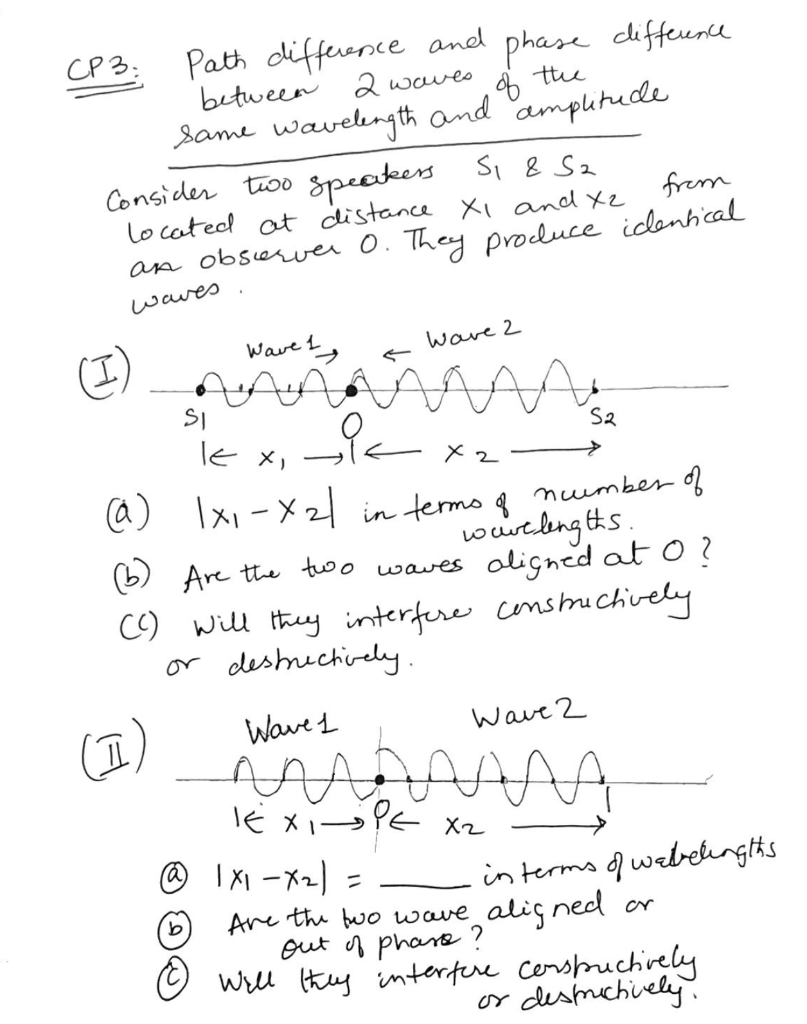 CP3: Path difference and phase difference
between 2 waves of the
same wavelength and amplitude
Consider two speakers S1 & S2
located at distance X1 and X2 from
an observer O. They produce identical
waves.
(I)
Wave 1 → ← Wave 2
S1 O S2
|← X1 →|← X2 →
(a) |X1 - X2| in terms of number of
wavelengths.
(b) Are the two waves aligned at O?
(c) Will they interfere constructively
or destructively.
(II)
Wave 1 Wave 2
O
|← X1 → ← X2 →|
(a) |X1 - X2| = ____ in terms of wavelengths
(b) Are the two wave aligned or
out of phase?
(c) Will they interfere constructively
or destructively.